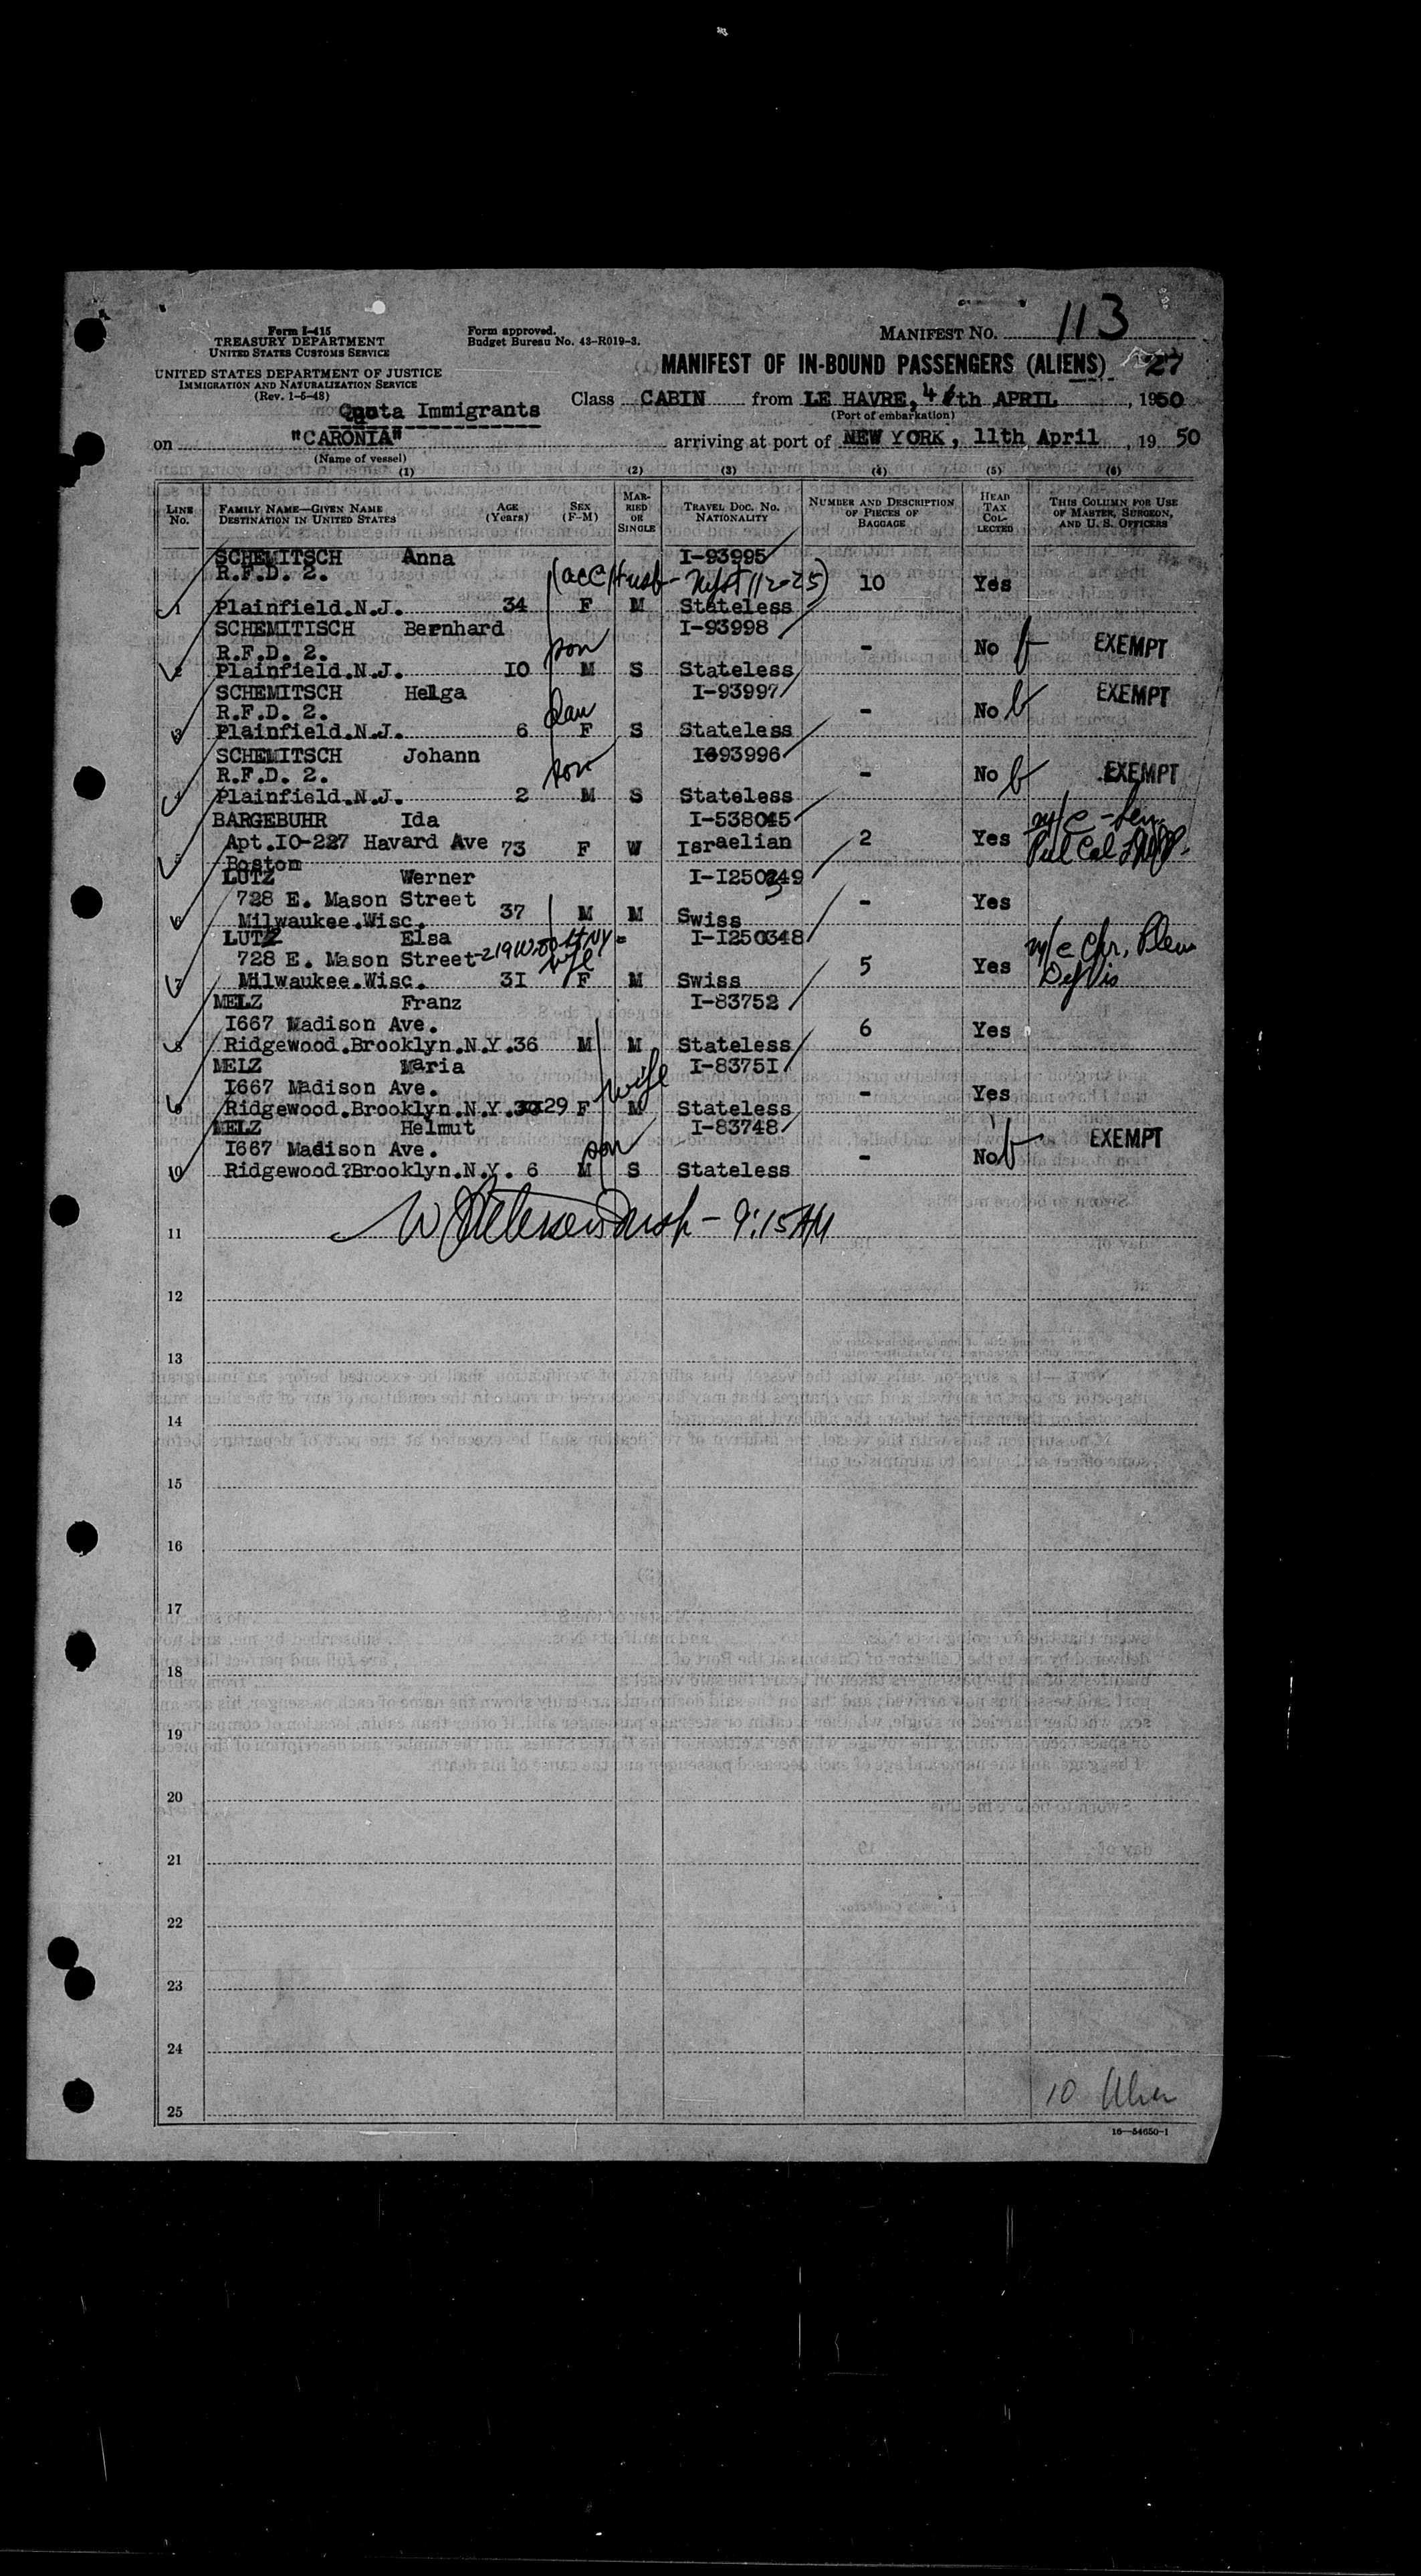 Form I-415
TREASURY DEPARTMENT
UNITED STATES CUSTOMS SERVICE
UNITED STATES DEPARTMENT OF JUSTICE
IMMIGRATION AND NATURALIZATION SERVICE
(Rev. 1-5-48)
Form approved.
Budget Bureau No. 43-R019-3.
MANIFEST NO. 113
MANIFEST OF IN-BOUND PASSENGERS (ALIENS) 27
Quota Immigrants
Class CABIN from LE HAVRE, 4th APRIL, 1950
(Port of embarkation)
on "CARONIA" arriving at port of NEW YORK, 11th April, 19 50
(Name of vessel)
(1) (2) (3) (4) (5) (6)
LINE No. FAMILY NAME—GIVEN NAME DESTINATION IN UNITED STATES AGE (Years) SEX (F-M) MARRIED OR SINGLE TRAVEL DOC. NO. NATIONALITY NUMBER AND DESCRIPTION OF PIECES OF BAGGAGE HEAD TAX COLLECTED THIS COLUMN FOR USE OF MASTER, SURGEON, AND U. S. OFFICERS
SCHEMITSCH Anna I-93995
R.F.D. 2. (acc Husb- 10 Yes
1 Plainfield.N.J. 34 F M Stateless
SCHEMITISCH Bernhard I-93998
R.F.D. 2. son - No EXEMPT
2 Plainfield.N.J. IO M S Stateless
SCHEMITSCH Helga I-93997
R.F.D. 2. dau - No EXEMPT
3 Plainfield.N.J. 6 F S Stateless
SCHEMITSCH Johann I-93996
R.F.D. 2. son - No EXEMPT
4 Plainfield.N.J. 2 M S Stateless
BARGEBUHR Ida I-538045
Apt.IO-227 Havard Ave 73 F W Israelian 2 Yes
5 Boston
LUTZ Werner I-I250349
728 E. Mason Street - Yes
6 Milwaukee.Wisc. 37 M M Swiss
LUTZ Elsa I-I250348
728 E. Mason Street wife 5 Yes
7 Milwaukee.Wisc. 3I F M Swiss
MELZ Franz I-83752
I667 Madison Ave. 6 Yes
8 Ridgewood.Brooklyn.N.Y.36 M M Stateless
MELZ Maria I-8375I
I667 Madison Ave. wife - Yes
9 Ridgewood.Brooklyn.N.Y. 29 F M Stateless
MELZ Helmut I-83748
I667 Madison Ave. son - No EXEMPT
10 Ridgewood?Brooklyn.N.Y. 6 M S Stateless
9:15 AM
11
12
13
14
15
16
17
18
19
20
21
22
23
24
10
25
16—54650-1